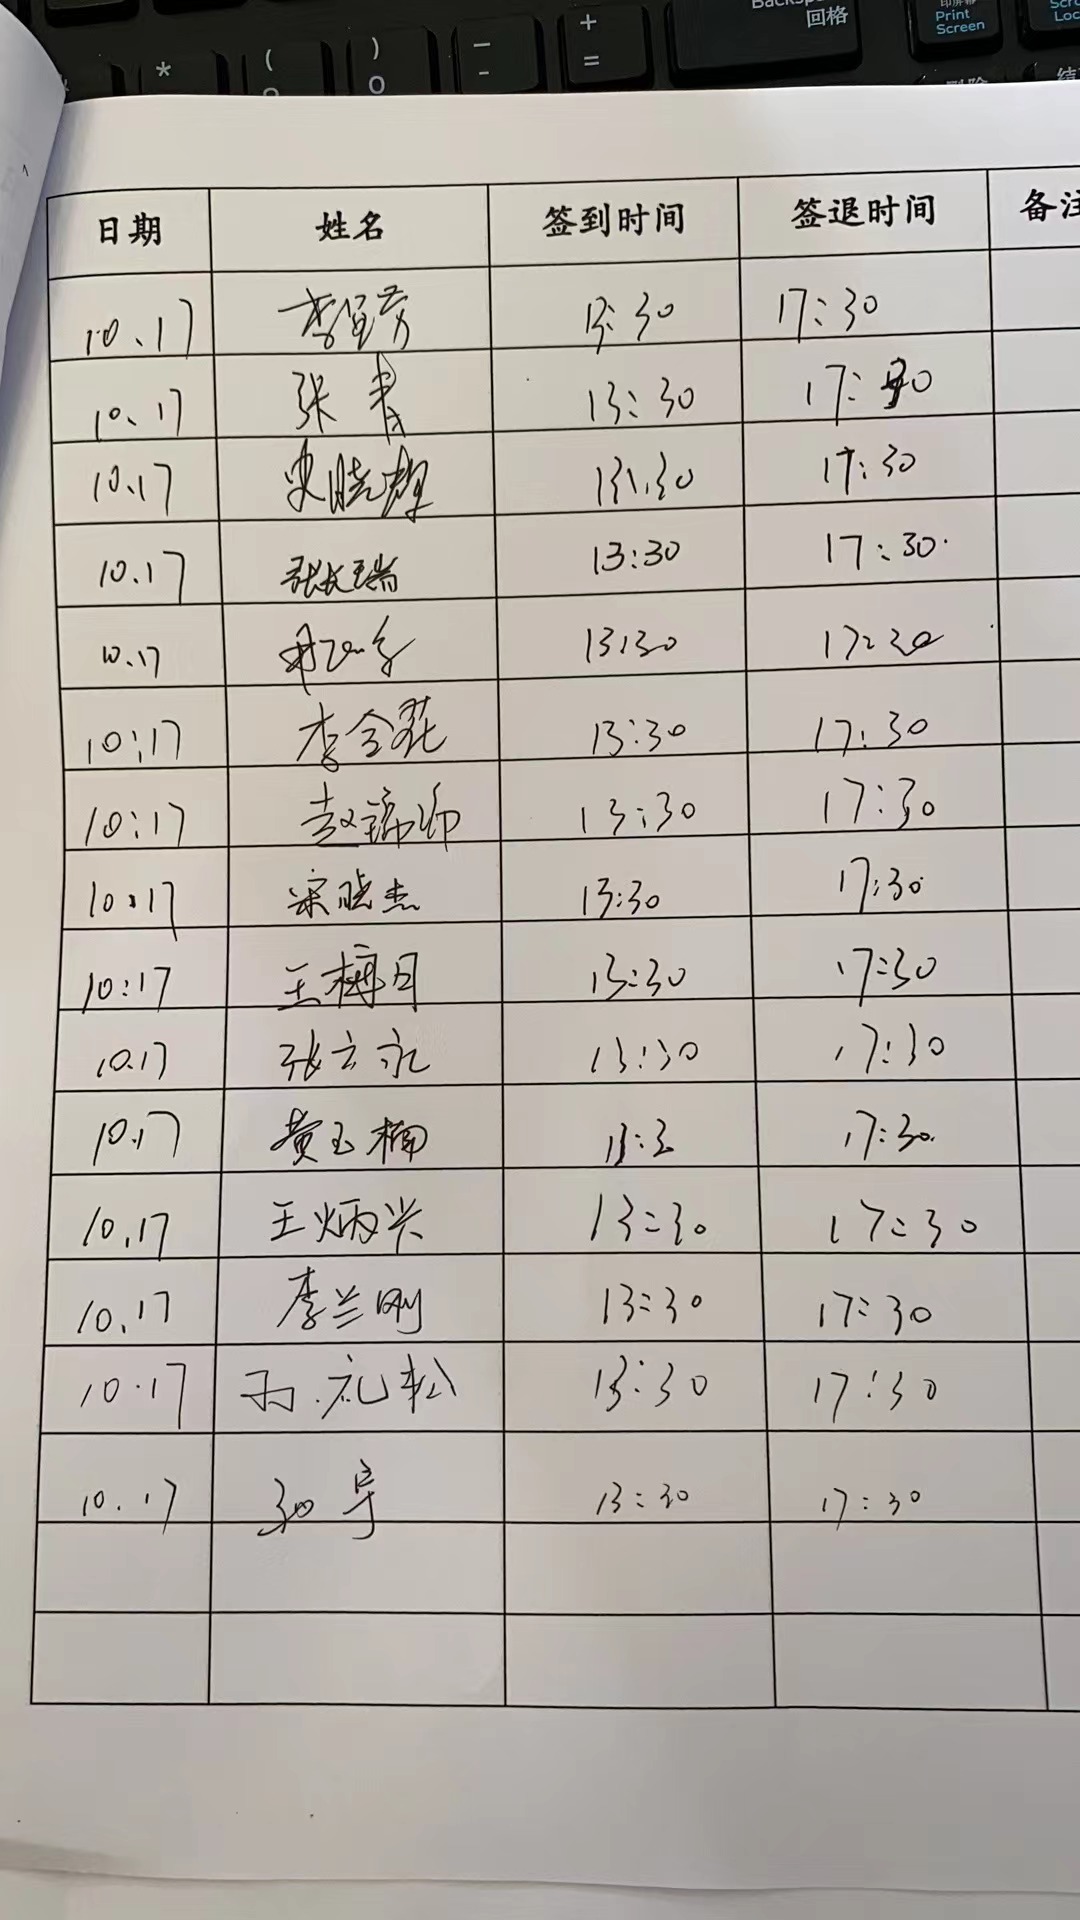 Backsp 回格
Print Screen
* ( ) 0 — - + =
日期 姓名 签到时间 签退时间 备注
10.17 13:30 17:30
10.17 张青 13:30 17:30
10.17 宋晓辉 13:30 17:30
10.17 张长瑞 13:30 17:30.
10.17 13:30 17:30
10:17 李全花 13:30 17:30
10:17 赵锦帅 13:30 17:30
10:17 宋晓杰 13:30 17:30
10:17 王梅月 13:30 17:30
10.17 张云永 13:30 17:30
10.17 黄玉楠 13:3 17:30.
10.17 王炳兴 13:30 17:30
10.17 李兰刚 13:30 17:30
10.17 孙礼松 13:30 17:30
10.17 13:30 17:30